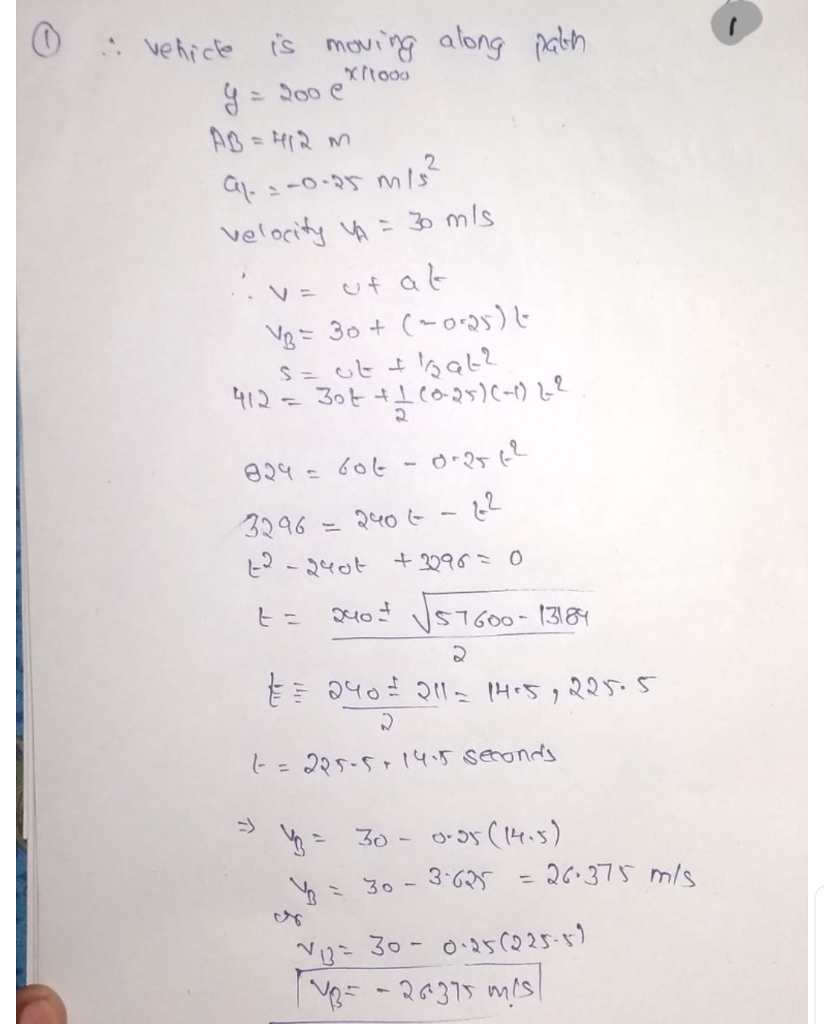 ① ∴ vehicle is moving along path
1
y = 200 e^x/1000
AB = 412 m
at = -0.25 m/s²
velocity VA = 30 m/s
∴ v = u + at
VB = 30 + (-0.25) t
s = ut + 1/2 at²
412 = 30t + 1/2 (0.25)(-1) t²
824 = 60t - 0.25 t²
3296 = 240t - t²
t² - 240t + 3296 = 0
t = 240 ± √57600 - 13184 / 2
t = 240 ± 211 / 2 = 14.5, 225.5
t = 225.5, 14.5 seconds
⇒ VB = 30 - 0.25 (14.5)
VB = 30 - 3.625 = 26.375 m/s
or
VB = 30 - 0.25(225.5)
VB = - 26.375 m/s